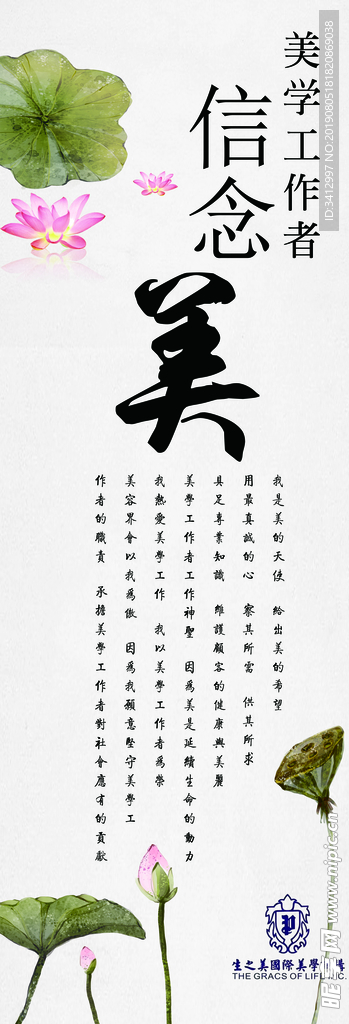 美学工作者
信念
美
我是美的天使 給出美的希望
用最真誠的心 察其所需 供其所求
具足專業知識 維護顧客的健康與美麗
美學工作者工作神聖 因為美是延續生命的動力
我熱愛美學工作 我以美學工作者為榮
美容界會以我為傲 因為我願意堅守美學工
作者的職責 承擔美學工作者對社會應有的貢獻
生之美國際美學
THE GRACS OF LIFE INC.
ID:3412997 NO:20190805181820869038
昵享网 www.nipic.cn